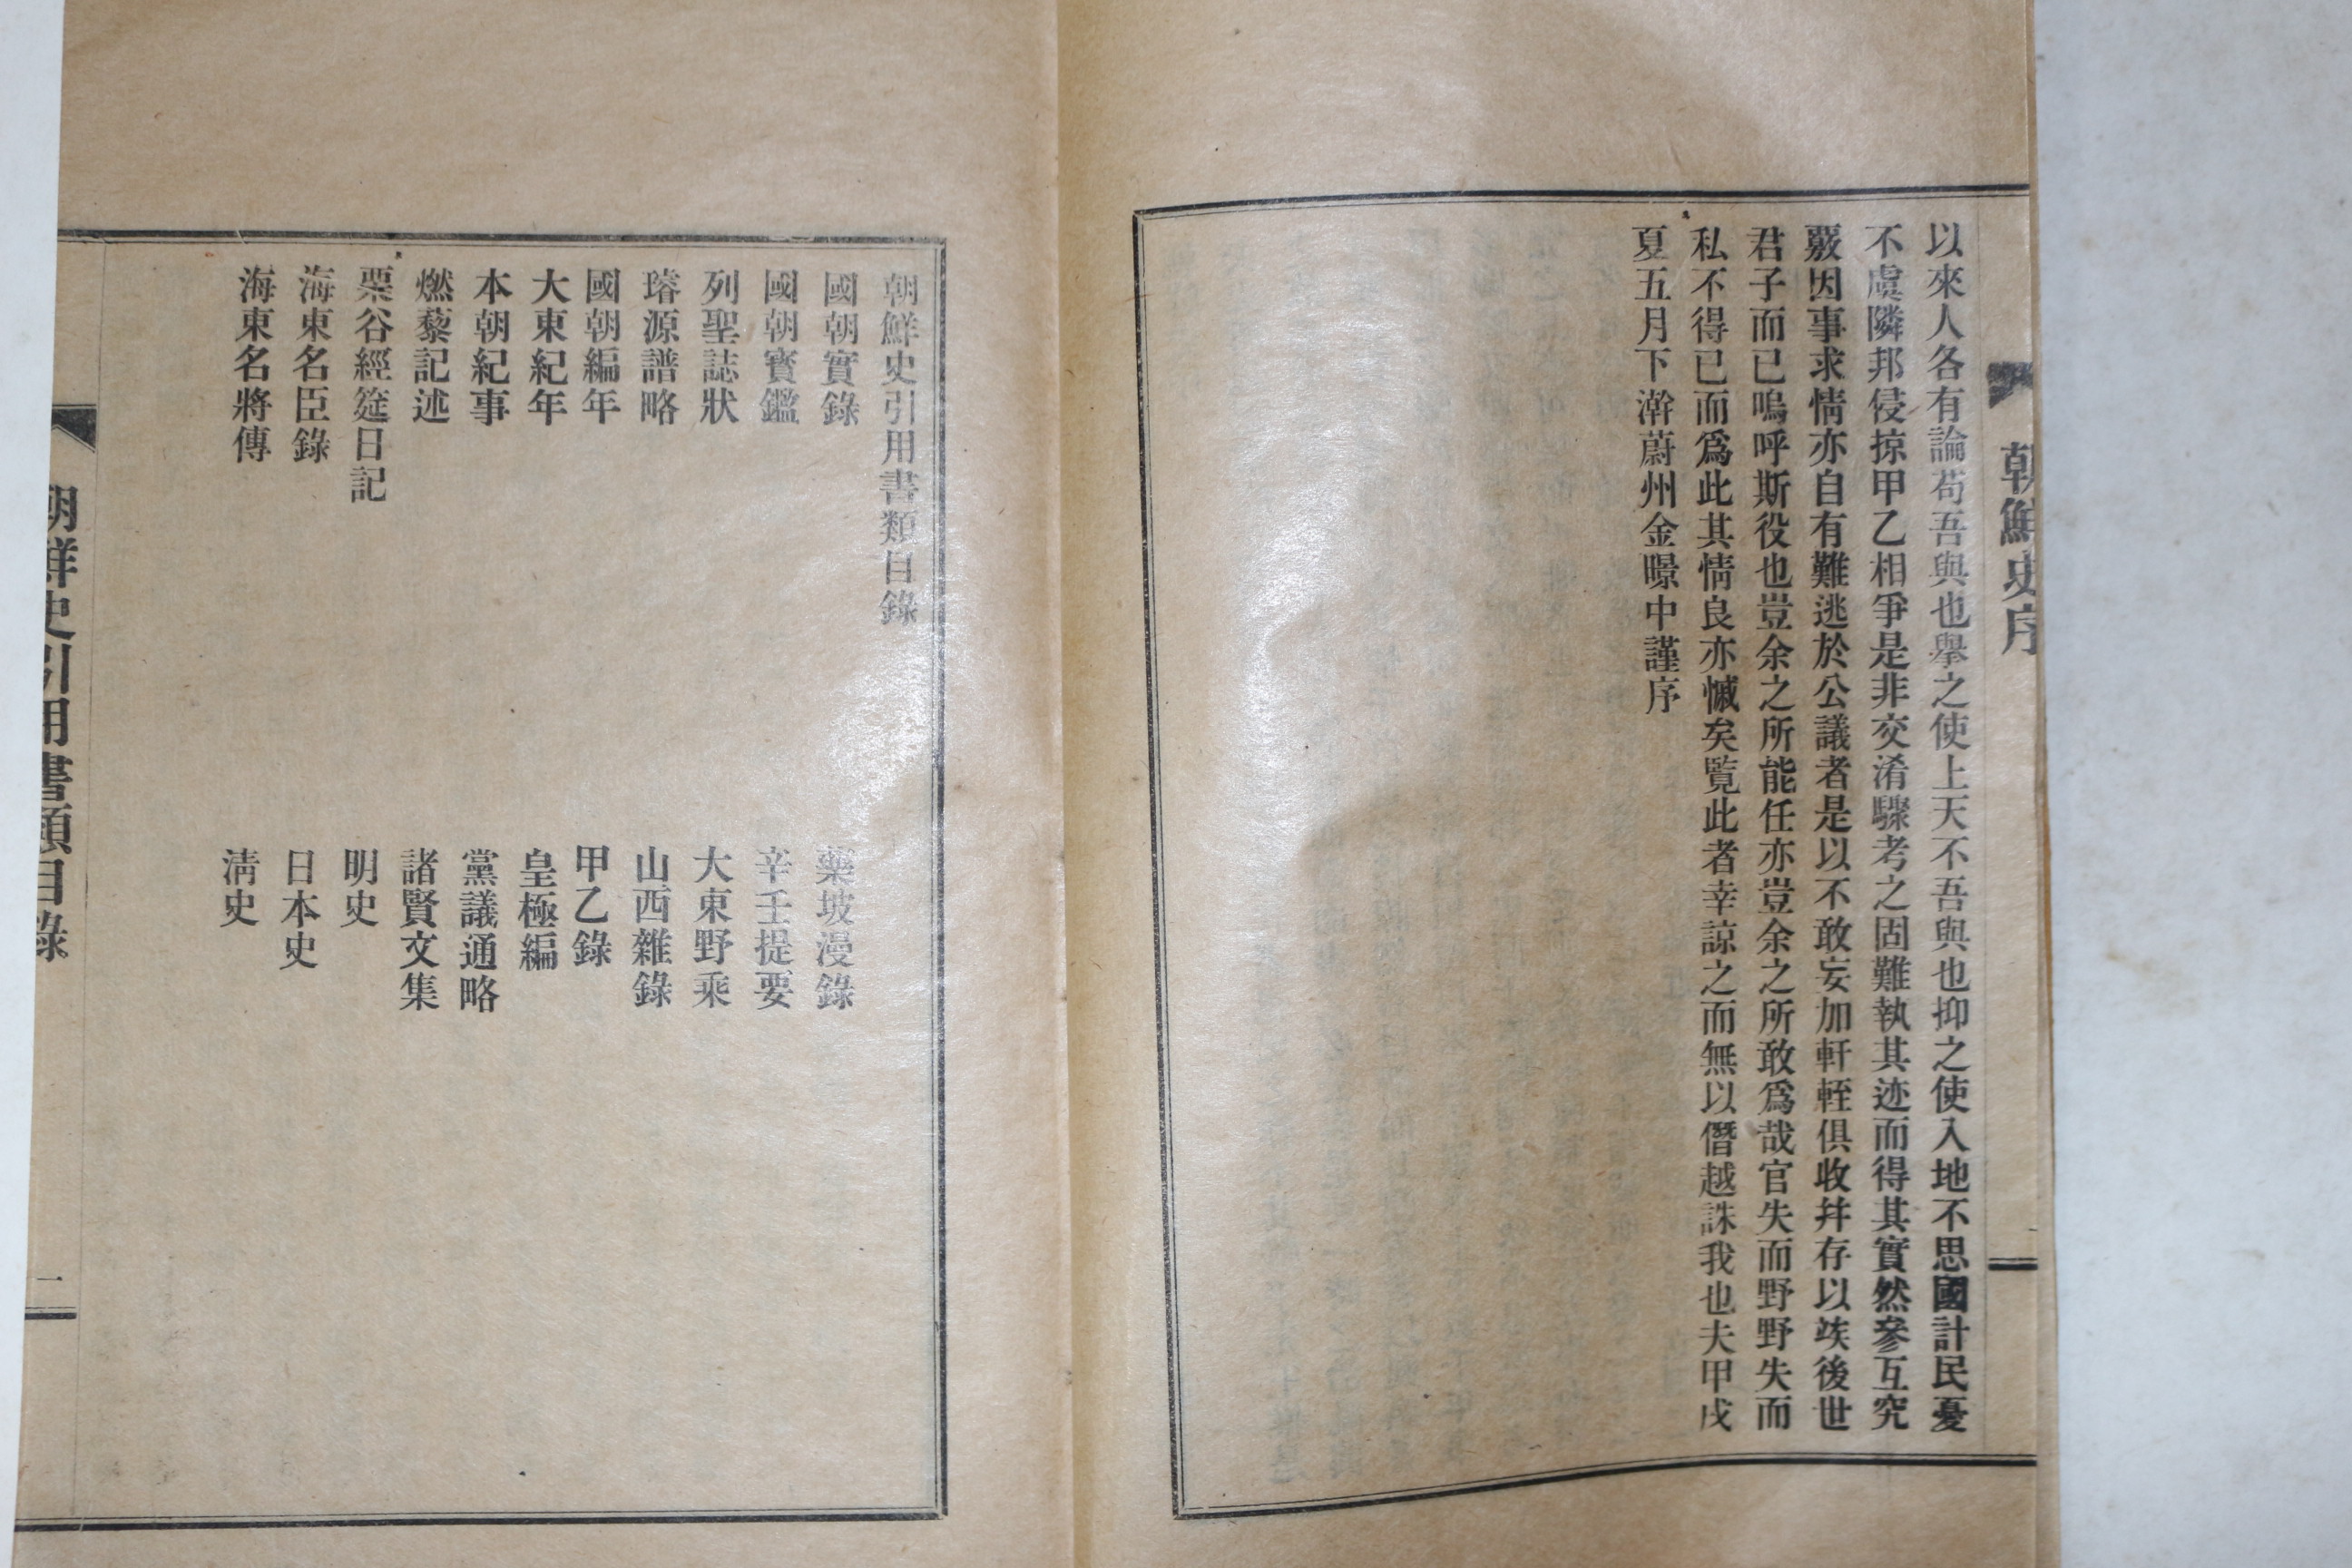 朝鮮史序
以來人各有論苟吾與也擧之使上天不吾與也抑之使入地不思國計民憂
不虞隣邦侵掠甲乙相爭是非交淆驟考之固難執其迹而得其實然參互究
覈因事求情亦自有難逃於公議者是以不敢妄加軒輊俱收幷存以竢後世
君子而已嗚呼斯役也豈余之所能任亦豈余之所敢爲哉官失而野野失而
私不得已而爲此其情良亦慽矣覽此者幸諒之而無以僭越誅我也夫甲戌
夏五月下澣蔚州金暻中謹序
朝鮮史引用書類目錄
國朝實錄
國朝寶鑑
列聖誌狀
璿源譜略
國朝編年
大東紀年
本朝紀事
燃藜記述
栗谷經筵日記
海東名臣錄
海東名將傳
藥坡漫錄
辛壬提要
大東野乘
山西雜錄
甲乙錄
皇極編
黨議通略
諸賢文集
明史
日本史
淸史
朝鮮史引用書類目錄
一